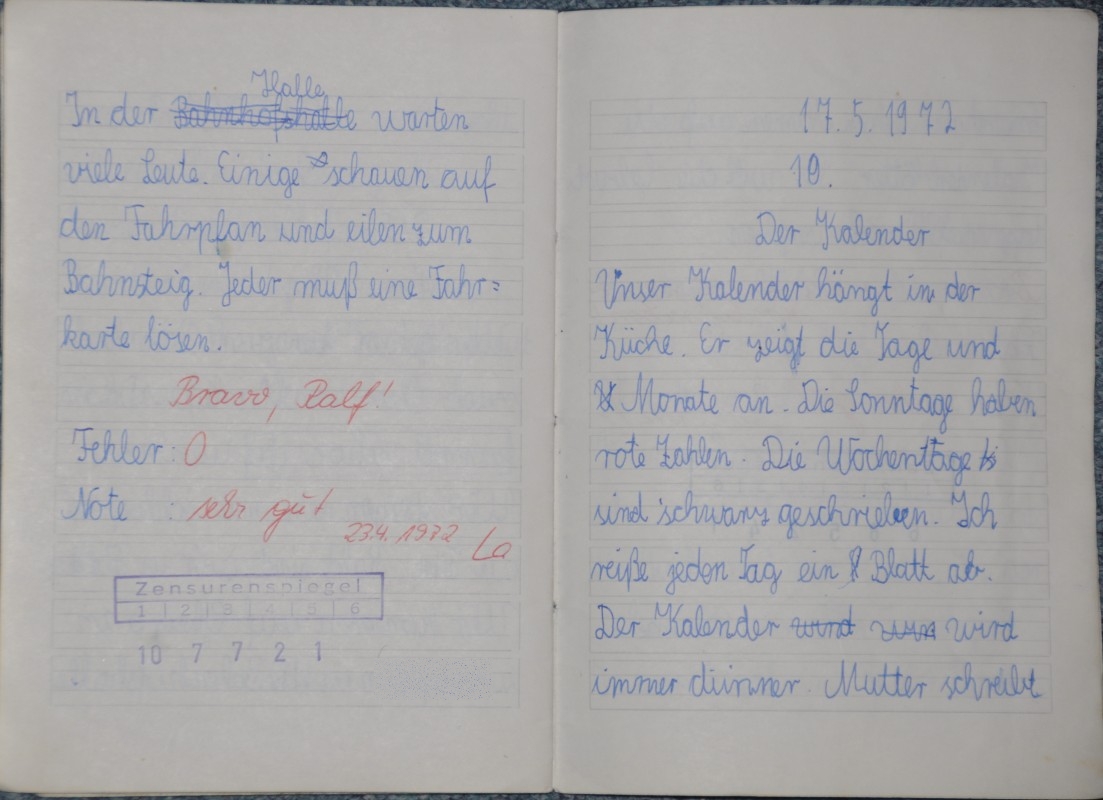 Halle
In der Bahnhofshalle warten
viele Leute. Einige schauen auf
den Fahrplan und eilen zum
Bahnsteig. Jeder muß eine Fahr=
karte lösen.
Bravo, Ralf!
Fehler: 0
Note : sehr gut
23.4.1972 La
Zensurenspiegel
1 | 2 | 3 | 4 | 5 | 6
10 7 7 2 1
17.5.1972
10.
Der Kalender
Unser Kalender hängt in der
Küche. Er zeigt die Tage und
Monate an. Die Sonntage haben
rote Zahlen. Die Wochenttage
sind schwarz geschrieben. Ich
reiße jeden Tag ein Blatt ab.
Der Kalender wird wird
immer dünner. Mutter schreibt